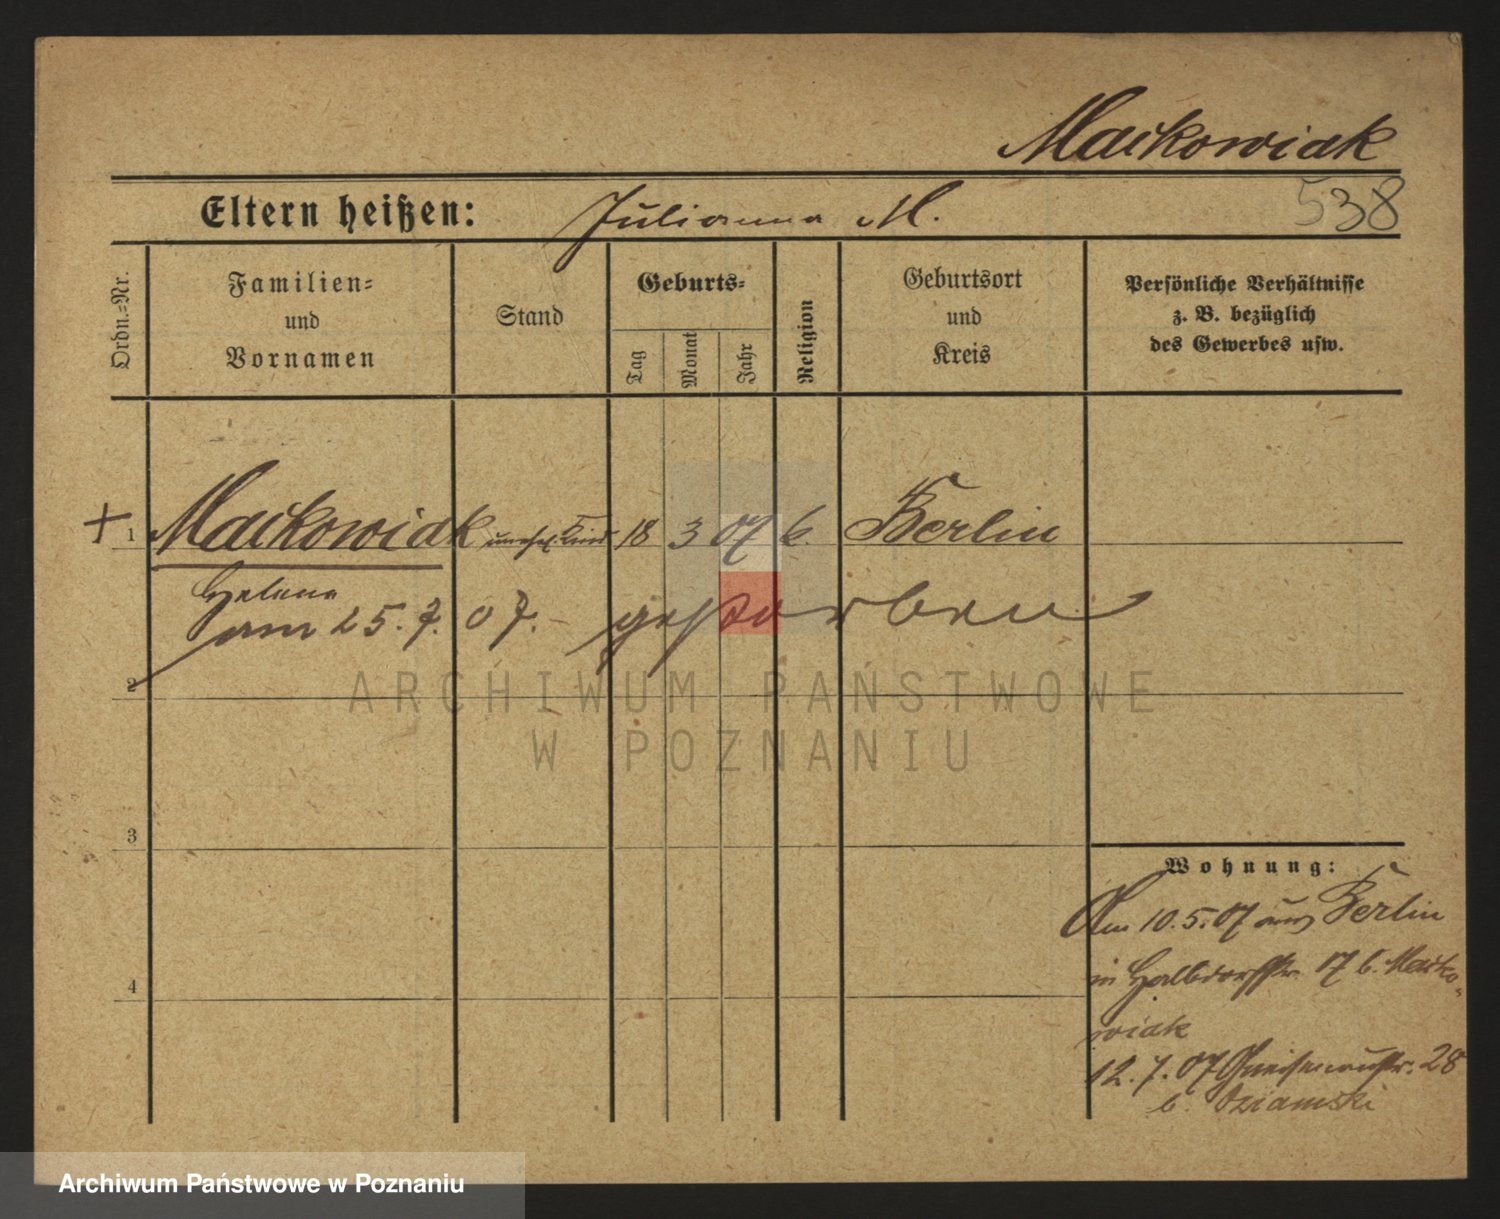 Maćkowiak
Eltern heißen: Julianna M.
538
Ordn.-Nr.
Familien-
und
Vornamen
Stand
Geburts-
Tag
Monat
Jahr
Religion
Geburtsort
und
Kreis
Persönliche Verhältnisse
z. B. bezüglich
des Gewerbes usw.
+ 1 Maćkowiak unehel. Kind 18 3 07 k. Berlin
Helena
am 25. 7. 07. - gestorben
2
ARCHIWUM PAŃSTWOWE
W POZNANIU
3
Wohnung:
Am 10.5.07 aus Berlin
in Halbdorfstr. 17 b. Maćko-
wiak
4
12.7.07 Gneisenaustr. 28
b. Oziamski
Archiwum Państwowe w Poznaniu